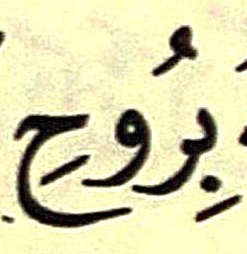 بِرُوحِ